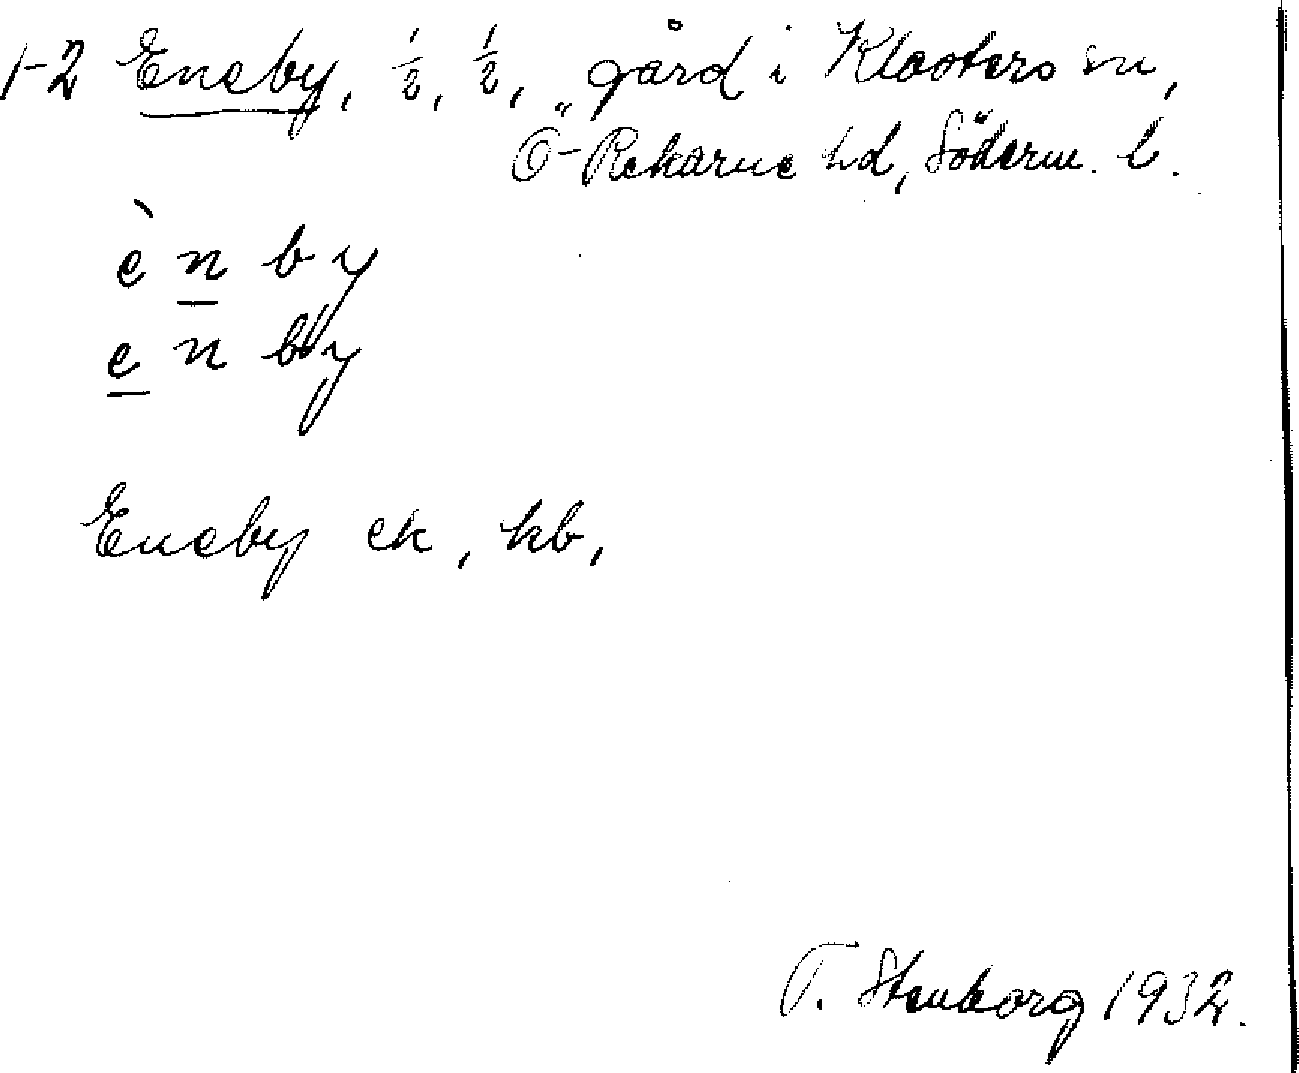 1-2 Eneby, ½, ½, gård i Klosters sn,
Ö-Rekarne hd, Söderm. l.
è n b y
e n b y
Eneby ek, kb,
T. Stenborg 1932.